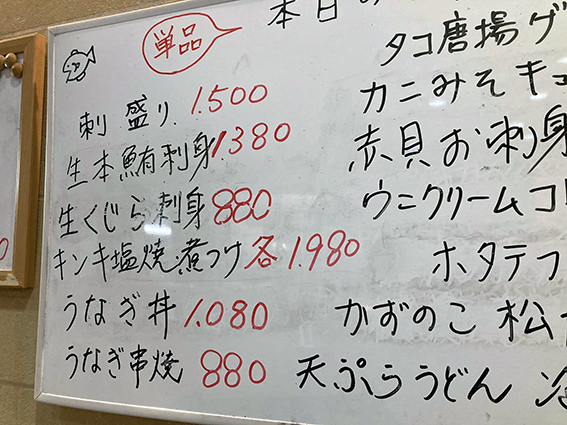 単品
刺盛り 1.500
生本鮪刺身 1380
生くじら刺身 880
キンキ塩焼・煮つけ 各1.980
うなぎ丼 1.080
うなぎ串焼 880
本日
タコ唐揚グ
カニみそキュ
赤貝お刺身
ウニクリームコ
ホタテフ
かずのこ松
天ぷらうどん